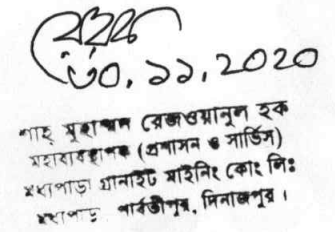 ৩০.১১.2020
শাহ্ মুহাম্মদ রেজওয়ানুল হক
মহাব্যবস্থাপক (প্রশাসন ও সার্ভিস)
মধ্যপাড়া গ্রানাইট মাইনিং কোং লিঃ
মধ্যপাড়া, পার্বতীপুর, দিনাজপুর।